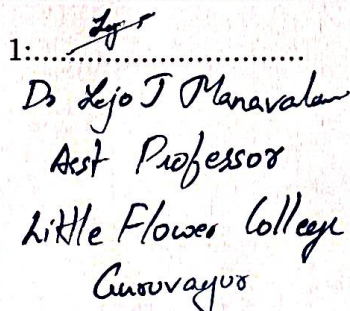 1:..............................
Dr Lejo J Manavalan
Asst Professor
Little Flower College
Guruvayur